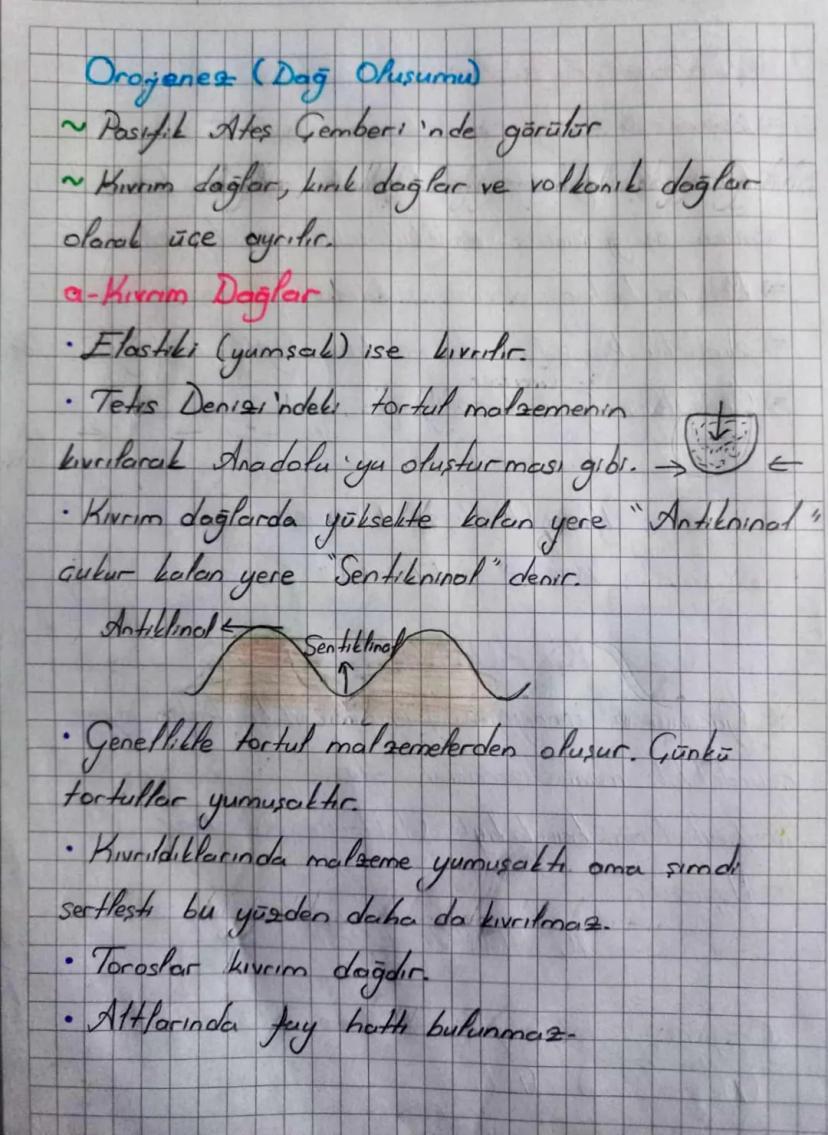 Orojenez (Dağ Oluşumu)
~ Pasifik Ateş Çemberi'nde görülür
~ Kıvrım dağlar, kırık dağlar ve volkanik dağlar
olarak üçe ayrılır.
a-Kıvrım Dağlar
• Elastiki (yumşak) ise kıvrılır.
• Tetis Denizi'ndeki tortul malzemenin
kıvrılarak Anadolu'yu oluşturması gibi.
• Kıvrım dağlarda yüksekte kalan yere "Antikninal"
çukur kalan yere "Sentikninal" denir.
Antiklinal
Sentiklinal
• Genellikle tortul malzemelerden oluşur. Çünkü
tortullar yumuşaktır.
• Kıvrıldıklarında malzeme yumuşaktı ama şimdi
sertleşti bu yüzden daha da kıvrılmaz.
• Toroslar kıvrım dağdır.
• Altlarında fay hattı bulunmaz.